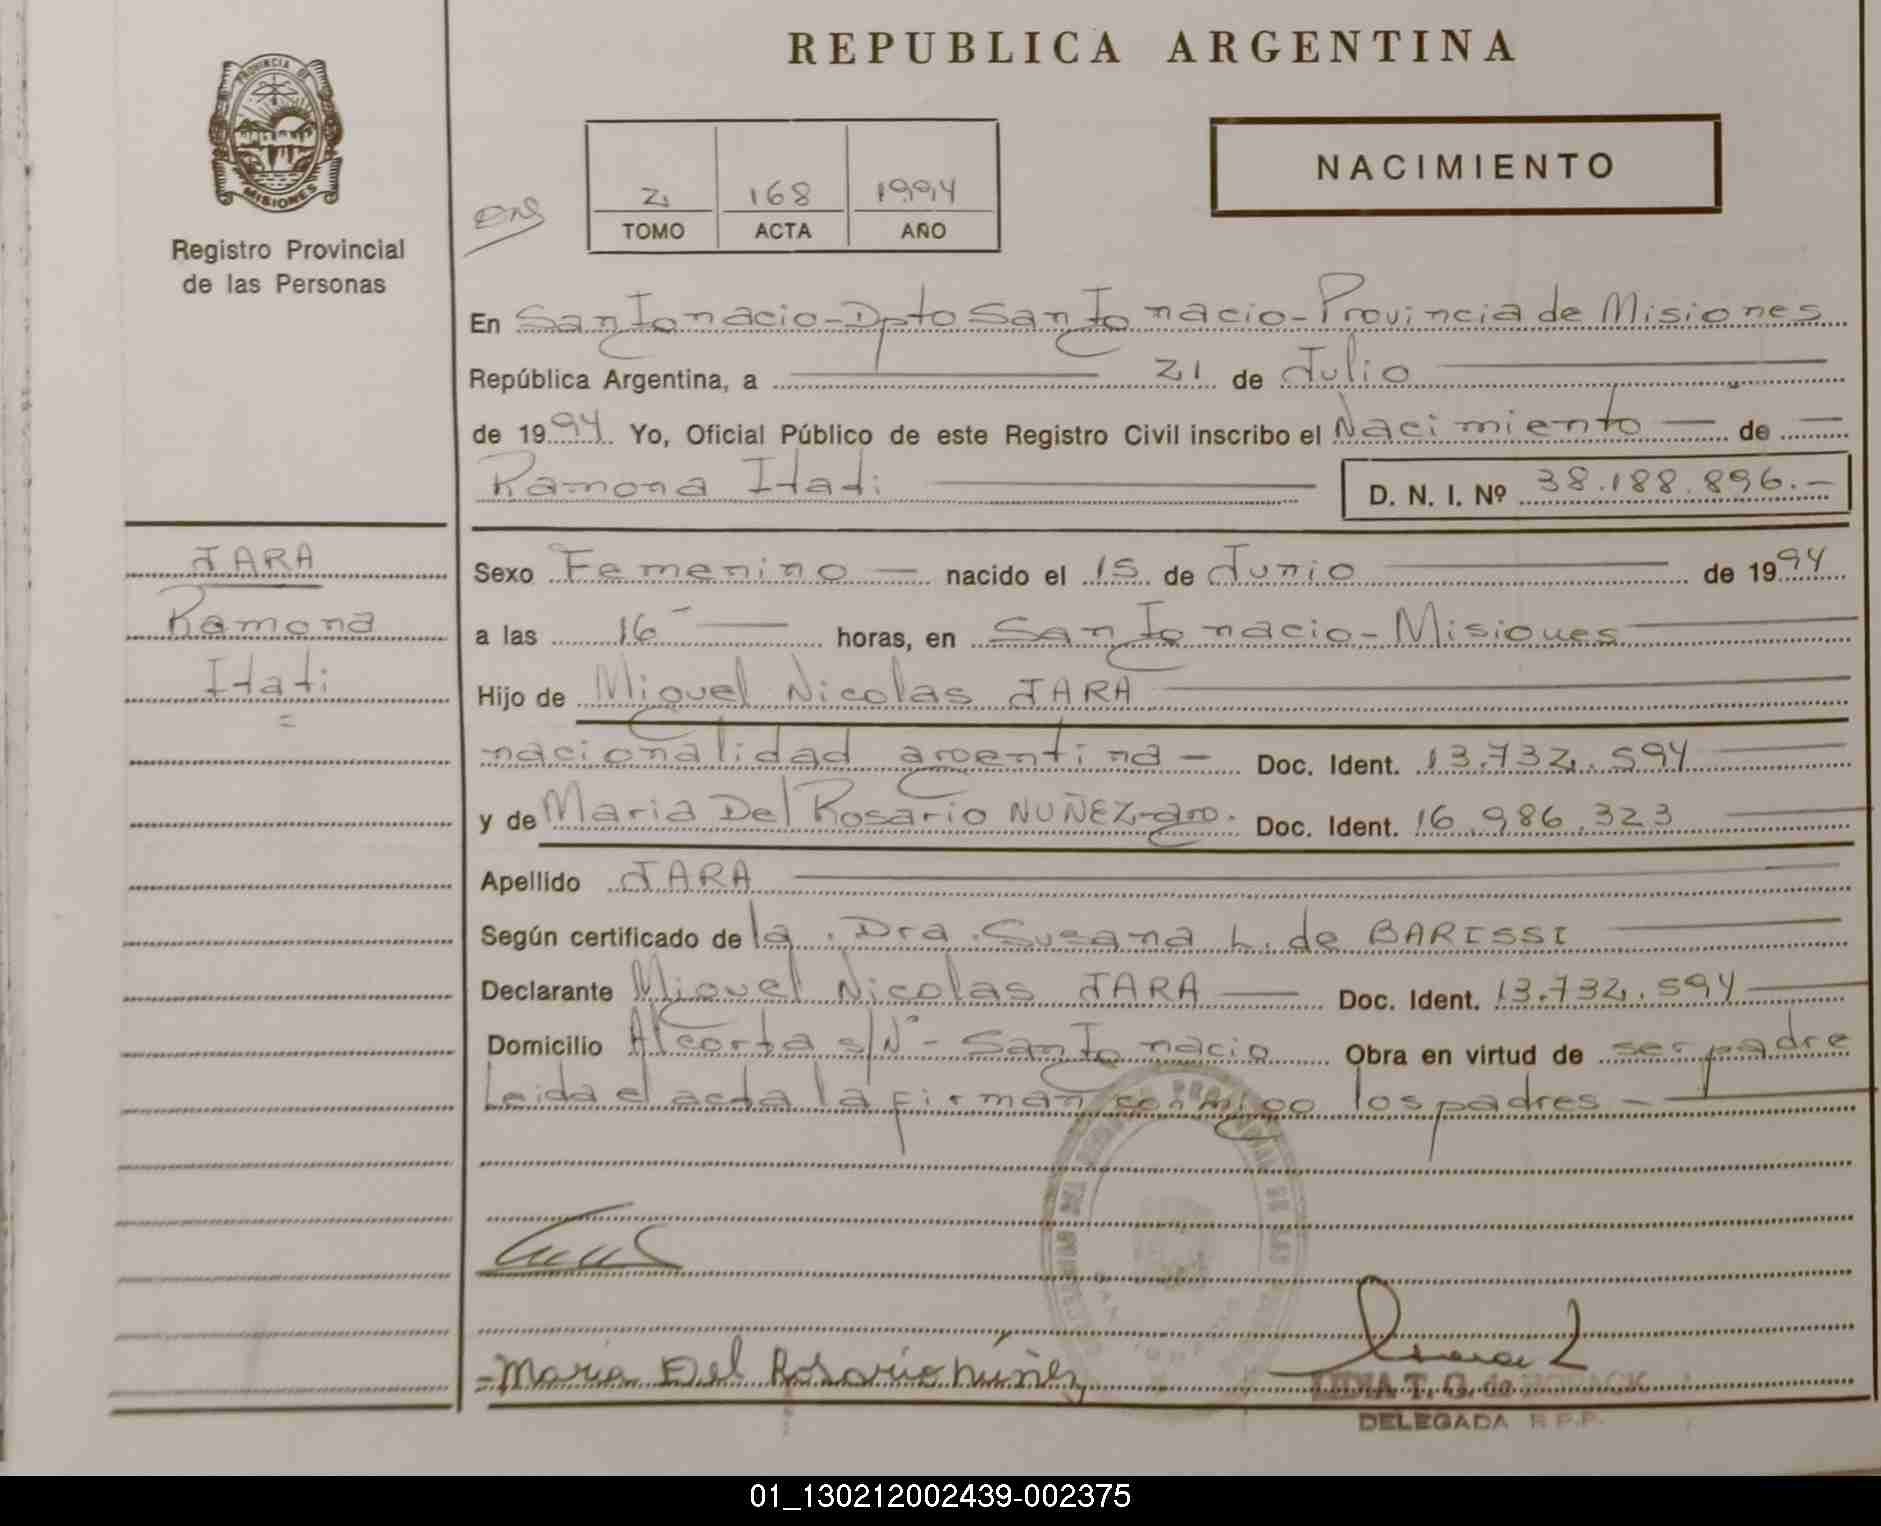 REPUBLICA ARGENTINA
PROVINCIA DE
MISIONES
Registro Provincial
de las Personas
NACIMIENTO
2 168 1994
TOMO ACTA AÑO
En San Ignacio - Dpto San Ignacio - Provincia de Misiones
República Argentina, a 21 de Julio
de 1994 Yo, Oficial Público de este Registro Civil inscribo el Nacimiento de
Ramona Itati
D. N. I. Nº 38.188.896.-
JARA
Ramona
Itati
Sexo Femenino nacido el 15 de Junio de 1994
a las 16 horas, en San Ignacio - Misiones
Hijo de Miguel Nicolas JARA
nacionalidad argentina - Doc. Ident. 13.732.594
y de Maria Del Rosario NUÑEZ - arg. Doc. Ident. 16.986.323
Apellido JARA
Según certificado de la Dra. Susana L. de BARISSI
Declarante Miguel Nicolas JARA Doc. Ident. 13.732.594
Domicilio Alcorta s/Nº - San Ignacio Obra en virtud de ser padre
Leida el acta la firman conmigo los padres -
Maria Del Rosario Núñez
LIDIA T. G. de
DELEGADA R.P.P.
01_130212002439-002375